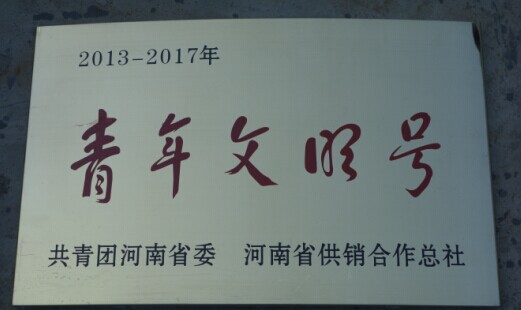 2013-2017年
青年文明号
共青团河南省委 河南省供销合作总社